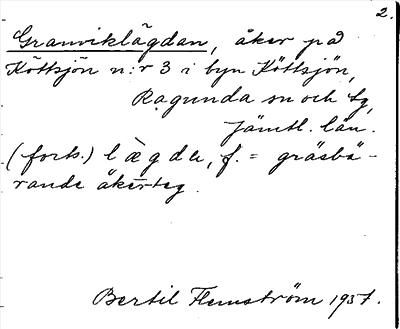 2.
Granviklägdan, åker på
Köttsjön n:r 3 i byn Köttsjön,
Ragunda sn och tg,
Jämtl. län.
(forts.) lægda, f. = gräsbä-
rande åkerteg.
Bertil Flemström 1957.